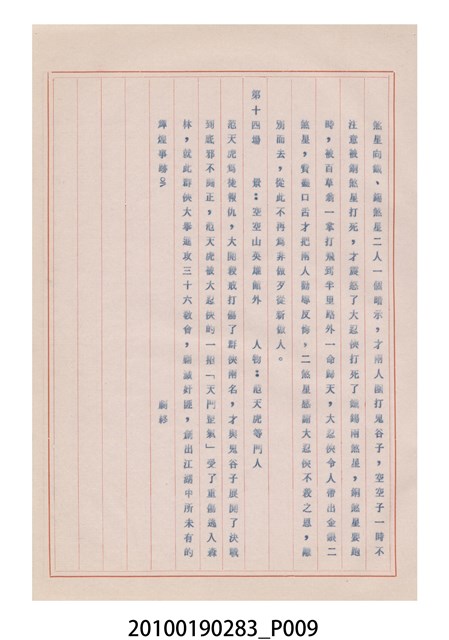 煞星向鐵、錫煞星二人一個暗示,才兩人圍打鬼谷子,空空子一時不
注意被銅煞星打死,才震怒了大忍俠打死了鐵錫兩煞星,銅煞星要跑
時,被百草翁一掌打飛到半里路外一命歸天,大忍俠令人帶出金銀二
煞星,費盡口舌才把兩人勸導反悔,二煞星感謝大忍俠不殺之恩,離
別而去,從此不再為非做歹從新做人。
第十四場 景:空空山英雄館外 人物:范天虎等門人
范天虎為徒報仇,大開殺戒打傷了群俠兩名,才與鬼谷子展開了決戰
到底邪不勝正,范天虎被大忍俠的一招「天門罡氣」受了重傷逃入森
林,就此群俠大舉進攻三十六教會,殲滅奸匪,創出江湖中所未有的
輝煌事蹟。
劇終
20100190283_P009